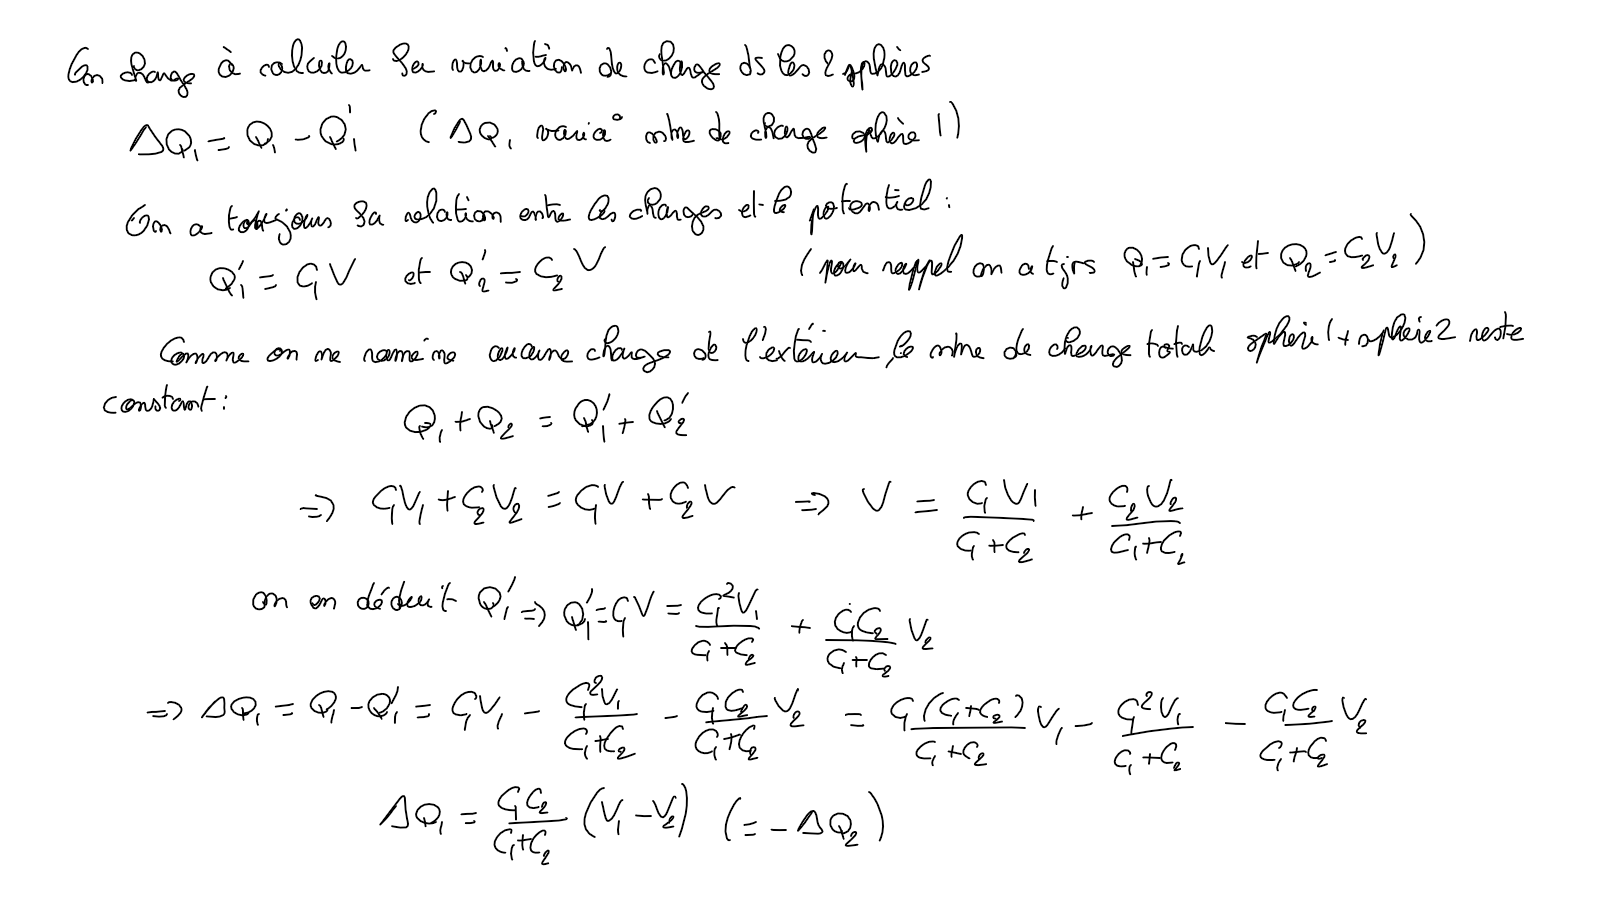 On cherche à calculer la variation de charge ds les 2 sphères
ΔQ₁ = Q₁ - Q₁' (ΔQ₁ varia° nbre de charge sphère 1)
On a toujours la relation entre les charges et le potentiel :
Q₁' = C₁V et Q₂' = C₂V (pour rappel on a tjrs Q₁ = C₁V₁ et Q₂ = C₂V₂)
Comme on ne ramène aucune charge de l'extérieur, le nbre de charge total sphère 1 + sphère 2 reste
constant :
Q₁ + Q₂ = Q₁' + Q₂'
=> C₁V₁ + C₂V₂ = C₁V + C₂V => V = C₁V₁/(C₁+C₂) + C₂V₂/(C₁+C₂)
on en déduit Q₁' => Q₁' = C₁V = C₁²V₁/(C₁+C₂) + C₁C₂/(C₁+C₂) V₂
=> ΔQ₁ = Q₁ - Q₁' = C₁V₁ - C₁²V₁/(C₁+C₂) - C₁C₂/(C₁+C₂) V₂ = C₁(C₁+C₂)/(C₁+C₂) V₁ - C₁²V₁/(C₁+C₂) - C₁C₂/(C₁+C₂) V₂
ΔQ₁ = C₁C₂/(C₁+C₂) (V₁ - V₂) (= - ΔQ₂)